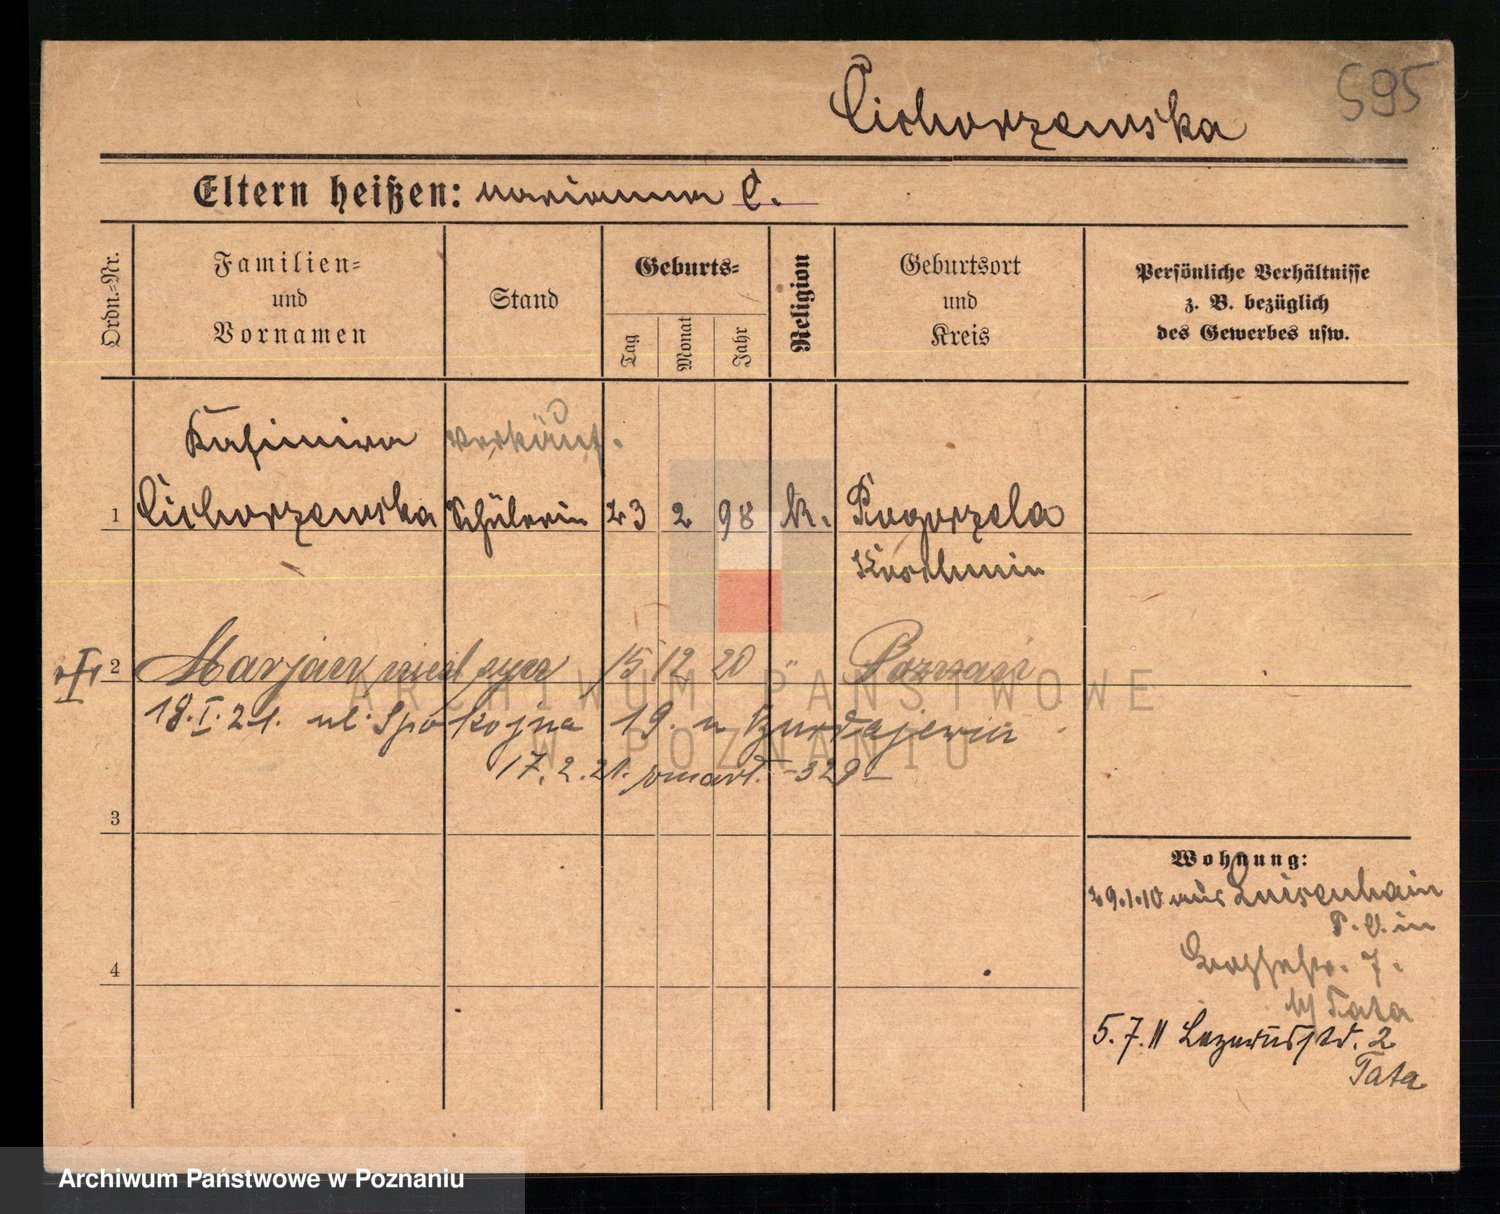 595
Cichorzewska
Eltern heißen: Marianna C.
Ordn.-Nr.
Familien-
und
Vornamen
Stand
Geburts-
Tag
Monat
Jahr
Religion
Geburtsort
und
Kreis
Persönliche Verhältnisse
z. B. bezüglich
des Gewerbes usw.
Kasimira Verkäuf.
1 Cichorzewska Schülerin 23 2 98 k. Pogorzela
Kroschmin
2 Marjan syn 15 12 20 " Poznań
18.I.21. ul. Spokojna 19. u
17.2.21. zmarł. -329-
3
4
Wohnung:
29.1.10 aus Luisenhain
P. O. in
7.
b/ Tata
5.7.11 Lazarusstr. 2
Tata
ARCHIWUM PAŃSTWOWE
W POZNANIU
Archiwum Państwowe w Poznaniu